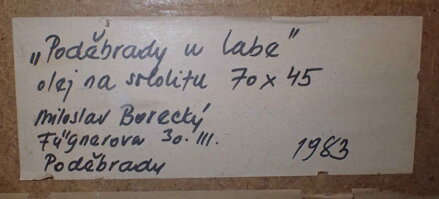 „Poděbrady u Labe"
olej na sololitu 70 x 45
Miloslav Borecký
Fügnerova 30. III.
Poděbrady 1983